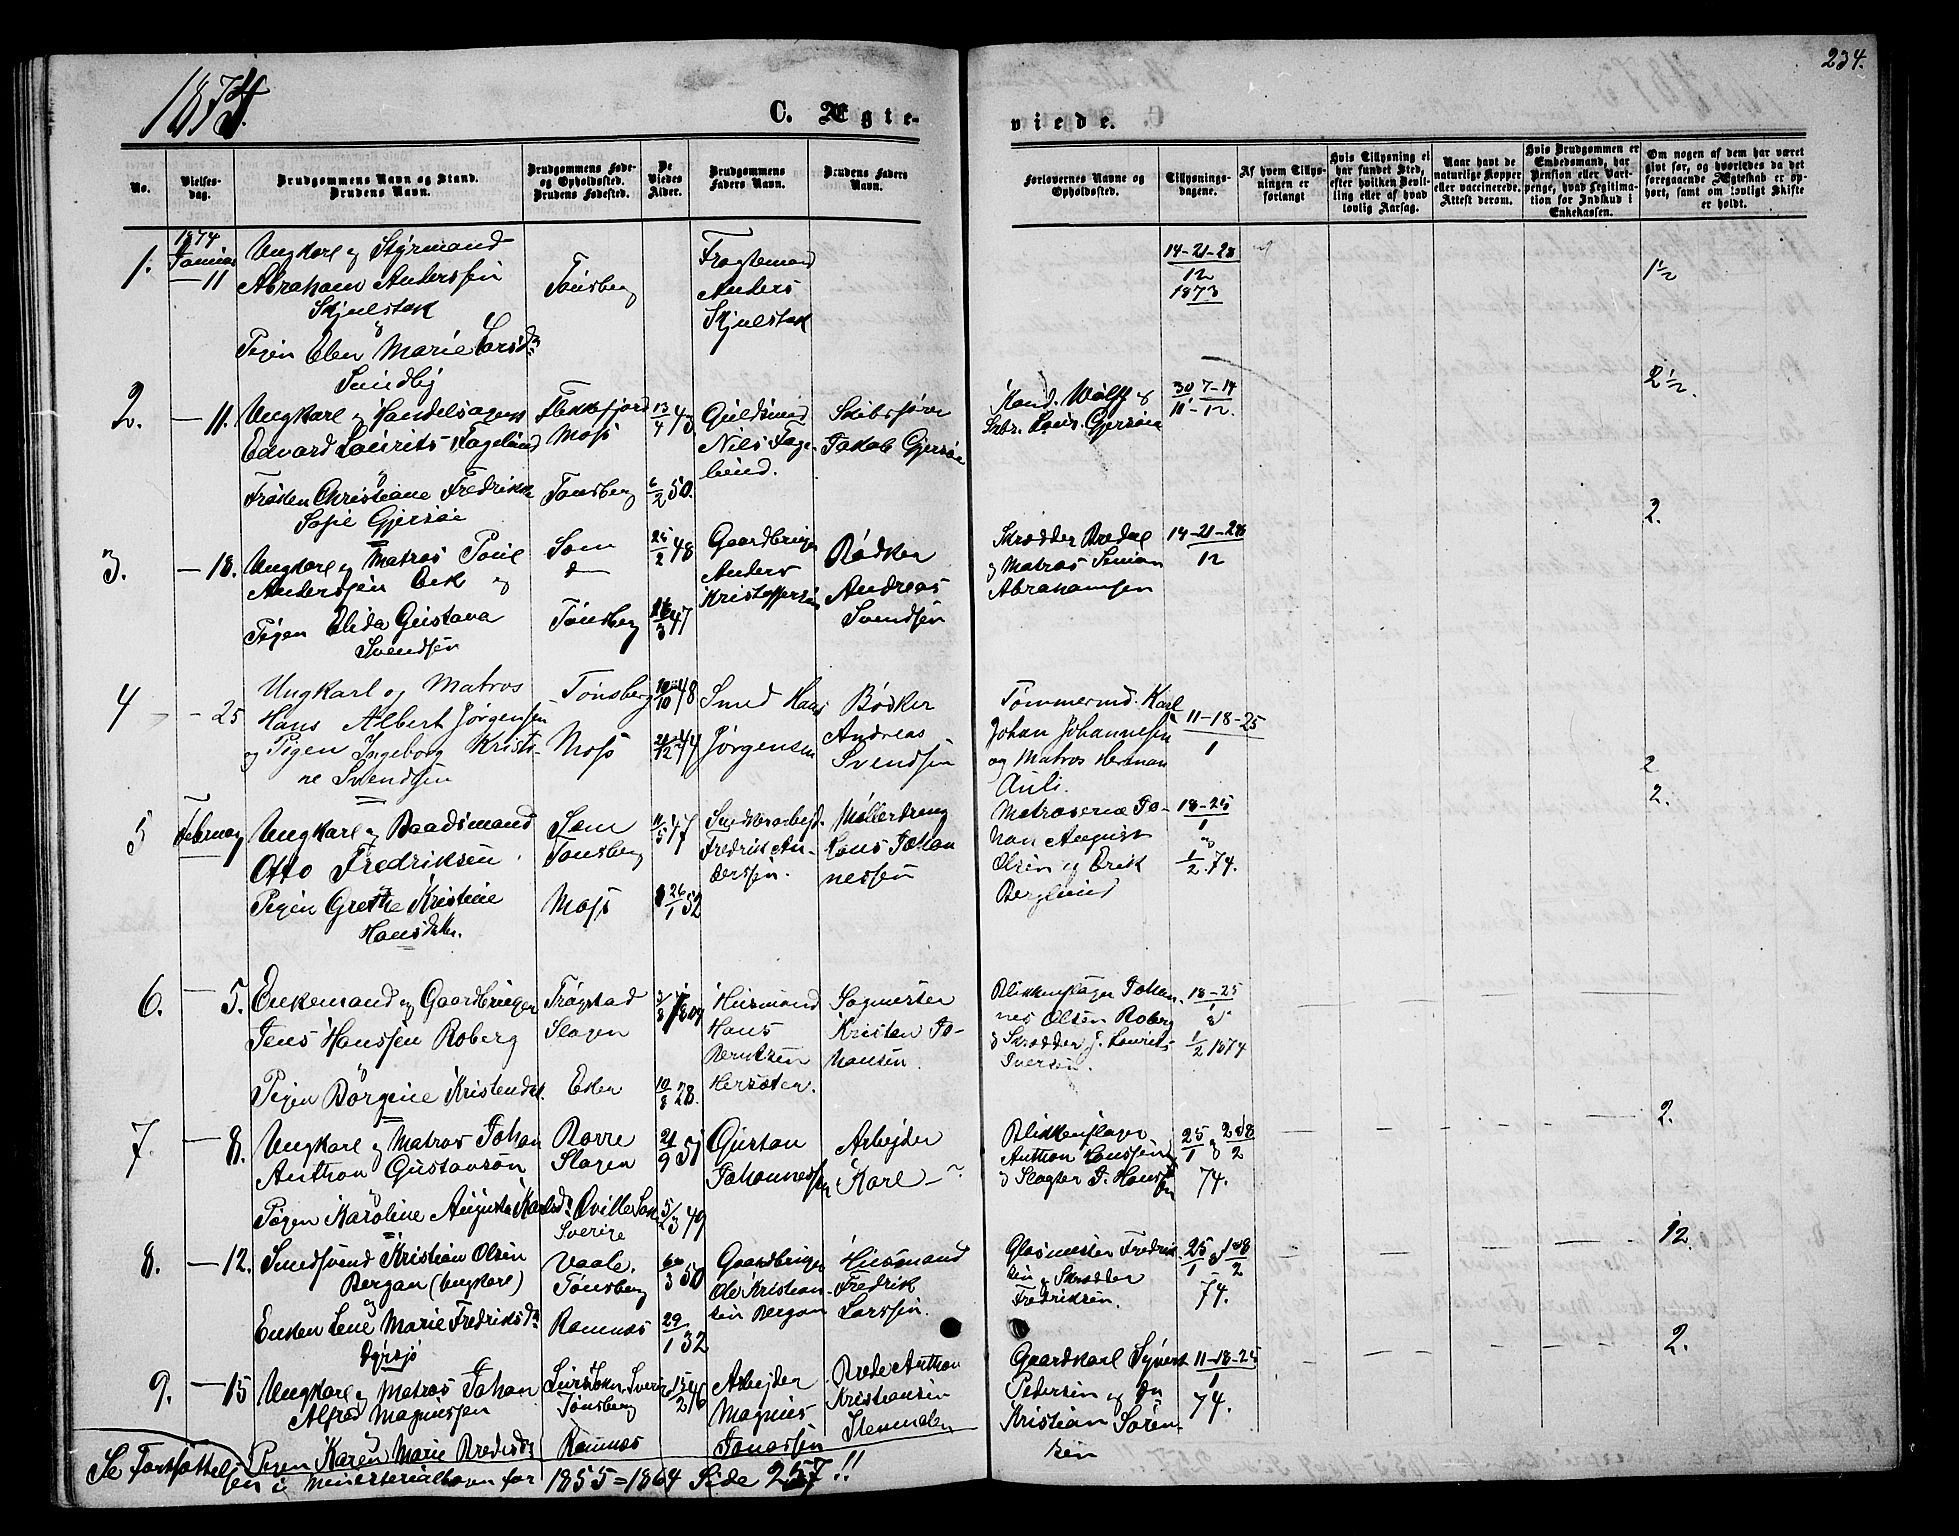 1874.
234.
C. Ægte-
viede.
No.
Vielses-
dag.
Brudgommens Navn og Stand.
Brudens Navn.
Brudgommens Føde-
og Opholdssted.
Brudens Fødested.
De
Viedes
Alder.
Brudgommens
Faders Navn.
Brudens Faders
Navn.
Forlovernes Navne og
Opholdssted.
Tillysnings-
dagene.
Af hvem Tillys-
ningen er
forlangt
Hvis Tillysning ei
har fundet Sted,
efter hvilken Bevil-
ling eller af hvad
lovlig Aarsag.
Naar havt de
naturlige Kopper
eller vaccinerede.
Attest derom.
Hvis Brudgommen er
Embedsmand, har
Pension eller Vart-
penge, hvad Legitima-
tion for Indskud i
Enkekassen.
Om nogen af dem har været
gift før, og hvorledes da det
foregaaende Ægteskab er op-
hørt, samt om lovligt Skifte
er holdt.
1.
1874
Januar
— 11
Ungkarl og Styrmand
Abraham Anderssen
Skjulstok
&
Pigen Elen Marie Larsd.
Sundby
Tønsberg
Fragtemand
Anders
Skjulstok
14-21-28
12
1873
1½
2.
— 11.
Ungkarl og Handelsagent
Edvard Lourits Fageland
&
Frøken Christiane Fredrikke
Sofie Gjersøe
Flekkefjord
Moss
Tønsberg
13/4 43.
6/2 50.
Guldsmed
Nils Fage-
lund.
Skibsfører
Jakob Gjersøe
Kand. Wolff og
Skbr. Gjersøe
30 7-14
11 - 12.
2½.
3.
— 18.
Ungkarl og Matros Poul
Anderssen Bek og
Pigen Elida Gustava
Svendsen
Sem
Tønsberg
25/2 48
26/3 47
Gaardbruger
Anders
Kristoffersen
Bødker
Andreas
Svendsen
Skrædder Bredal
og Matros Simon
Abrahamsen
14-21-28
12
2.
4
— 25
Ungkarl og Matros
Hans Albert Jørgensen
og Pigen Ingeborg Kristi-
ne Svendsen
Tønsberg
Moss
10/10 48
21/12 44
Smed Hans
Jørgensen
Bødker
Andreas
Svendsen
Tømmermd. Karl
Johan Johannesen
og Matros Herman
Auli.
11-18-25
1
2
5
Februar
Ungkarl og Baadsmand
Otto Fredriksen
Pigen Grethe Kristine
Hansdatter.
Sem
Tønsberg
Moss
11/5 47
26/1 52
Fredrik An-
derssen.
Møllerdreng
Hans Johan
nessen
Matroserne Jo-
han August
Olsen og Erik
Berglund
18-25
1
1/2 .74.
2.
6.
— 5.
Enkemand og Gaardbruger
Jens Hanssen Roberg
&
Pigen Børgine Kristensd.
Trøgstad
Slagen
Eker
10/8 28.
Husmand
Hans
Berntsen
Hersæter.
Sagmester
Kristen Jo-
hansen.
Blikkenslager Johan-
nes Olsen Roberg
& Skrædder J. Lourits
Iversen.
18-25
1
&
1/2 1874
7.
— 8.
Ungkarl og Matros Johan
Anthon Gustavsøn
&
Pigen Karoline Augusta Karlsd.
Borre
Slagen
Qville Sokn
Sverige
21/9 51
5/3 49
Gustav
Johannessen
Arbejder
Karl — ?
Blikkenslager
Anthon Hanssen
& Slagter J. Hans-
sen
25/1 & 2 & 8/2
74.
2.
8.
— 12.
Smedsvend Kristian Olsen
Bergan (Ungkarl)
og
Enken Lene Marie Fredriksd.
Dyrsjø
Vaale.
Tønsberg
Ramnæs
3 50
29/1 32
Gaardbruger
Ole Kristian-
sen Bergan
Husmand
Fredrik
Larssen.
Glasmester Fredrik-
sen & Skrædder
Fredriksen.
25/1 & 1 & 8/2
74.
12.
9.
— 15
Ungkarl og Matros Johan
Alfred Magnussen
&
Pigen Karen Marie Bredesd.
Sverige
Tønsberg
Ramnæs
15/2 46
Arbejder
Magnus
Jonassen
Brede Anthon
Kristiansen
Stenmalen
Gaardkarl Syvert
Pedersen og do
Kristian Søren-
sen
11-18-25
1
74.
2.
Se Fortsættel-
sen i Ministerialbogen for 1855=1864 Side 257!!